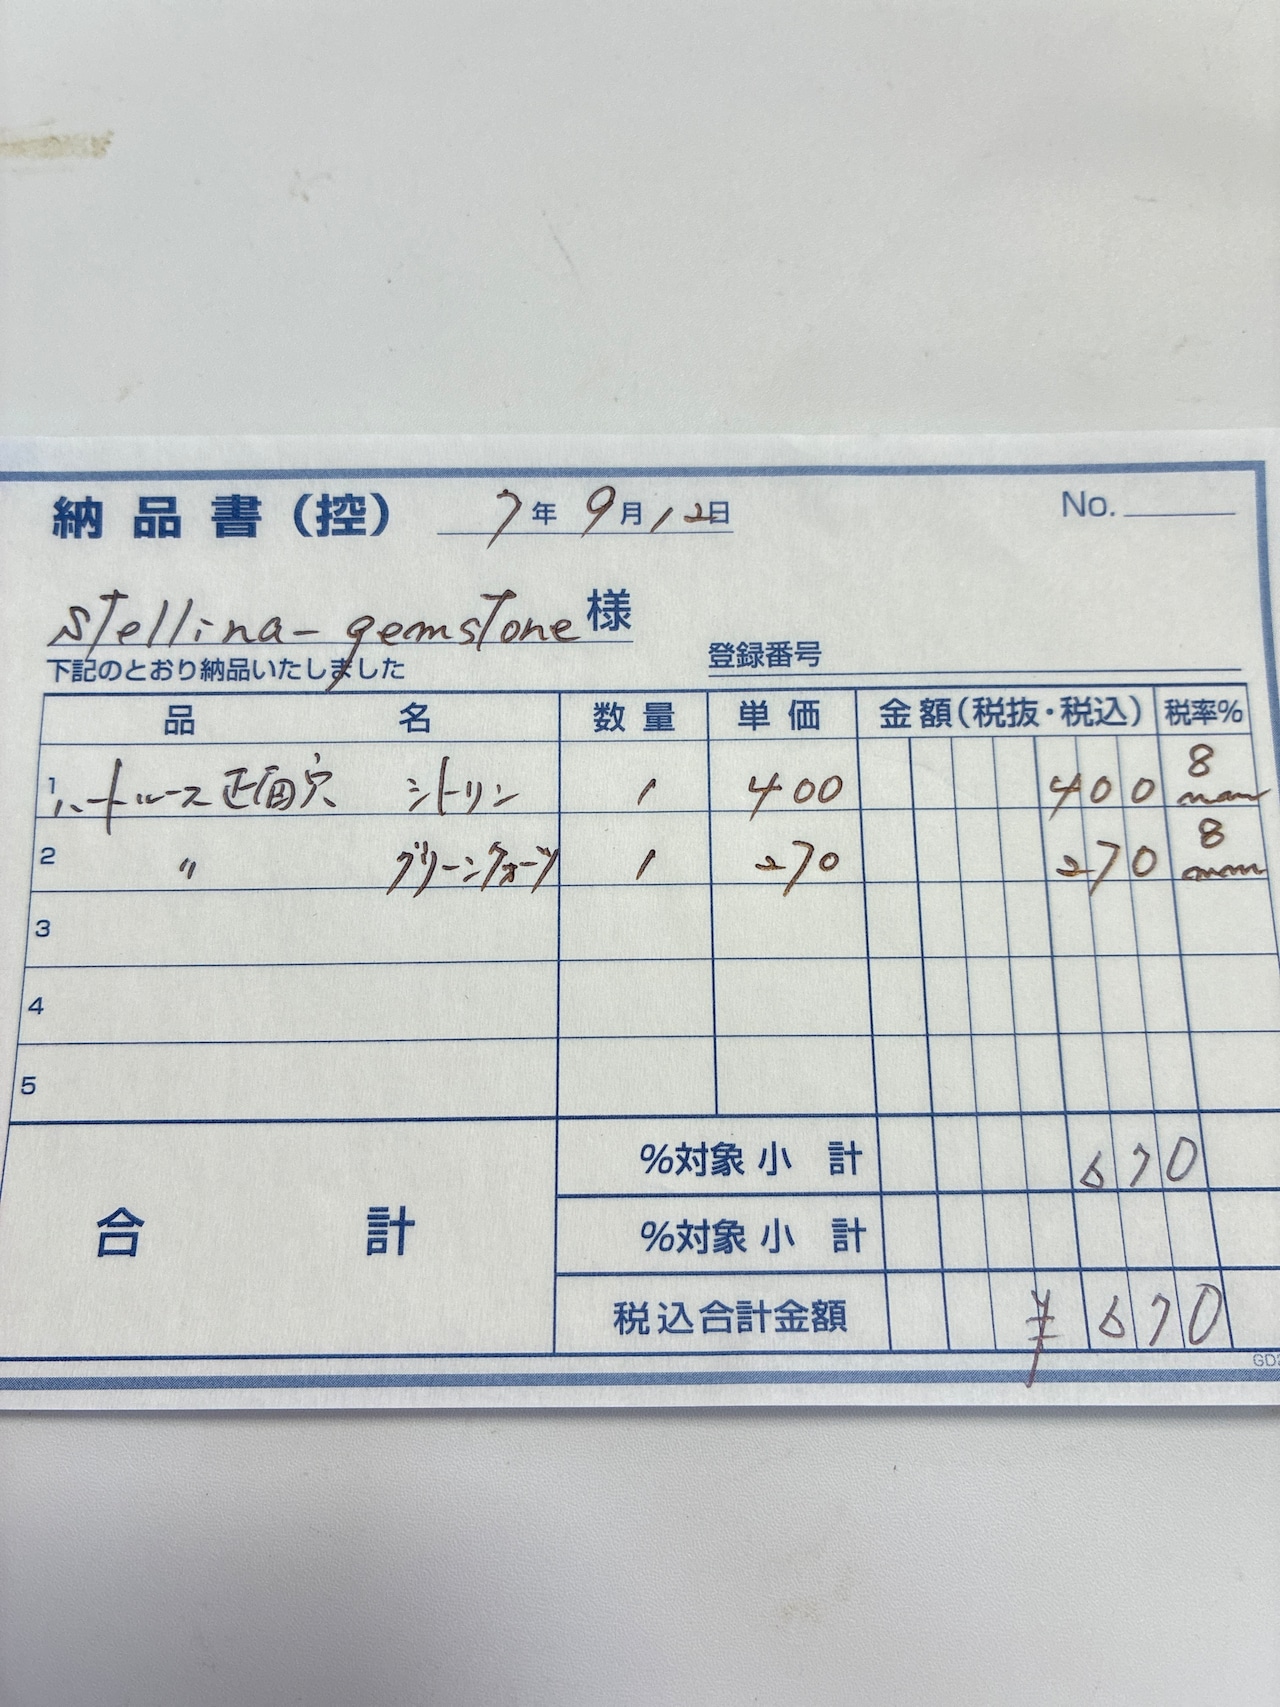 納品書(控) 7年9月12日 No.
stellina-gemstone様
下記のとおり納品いたしました 登録番号
品名 数量 単価 金額(税抜・税込) 税率%
1 ハートルース 正面穴 シトリン 1 400 400 8mm
2 〃 グリーンクォーツ 1 270 270 8mm
3
4
5
合計
%対象小計 670
%対象小計
税込合計金額 ¥670